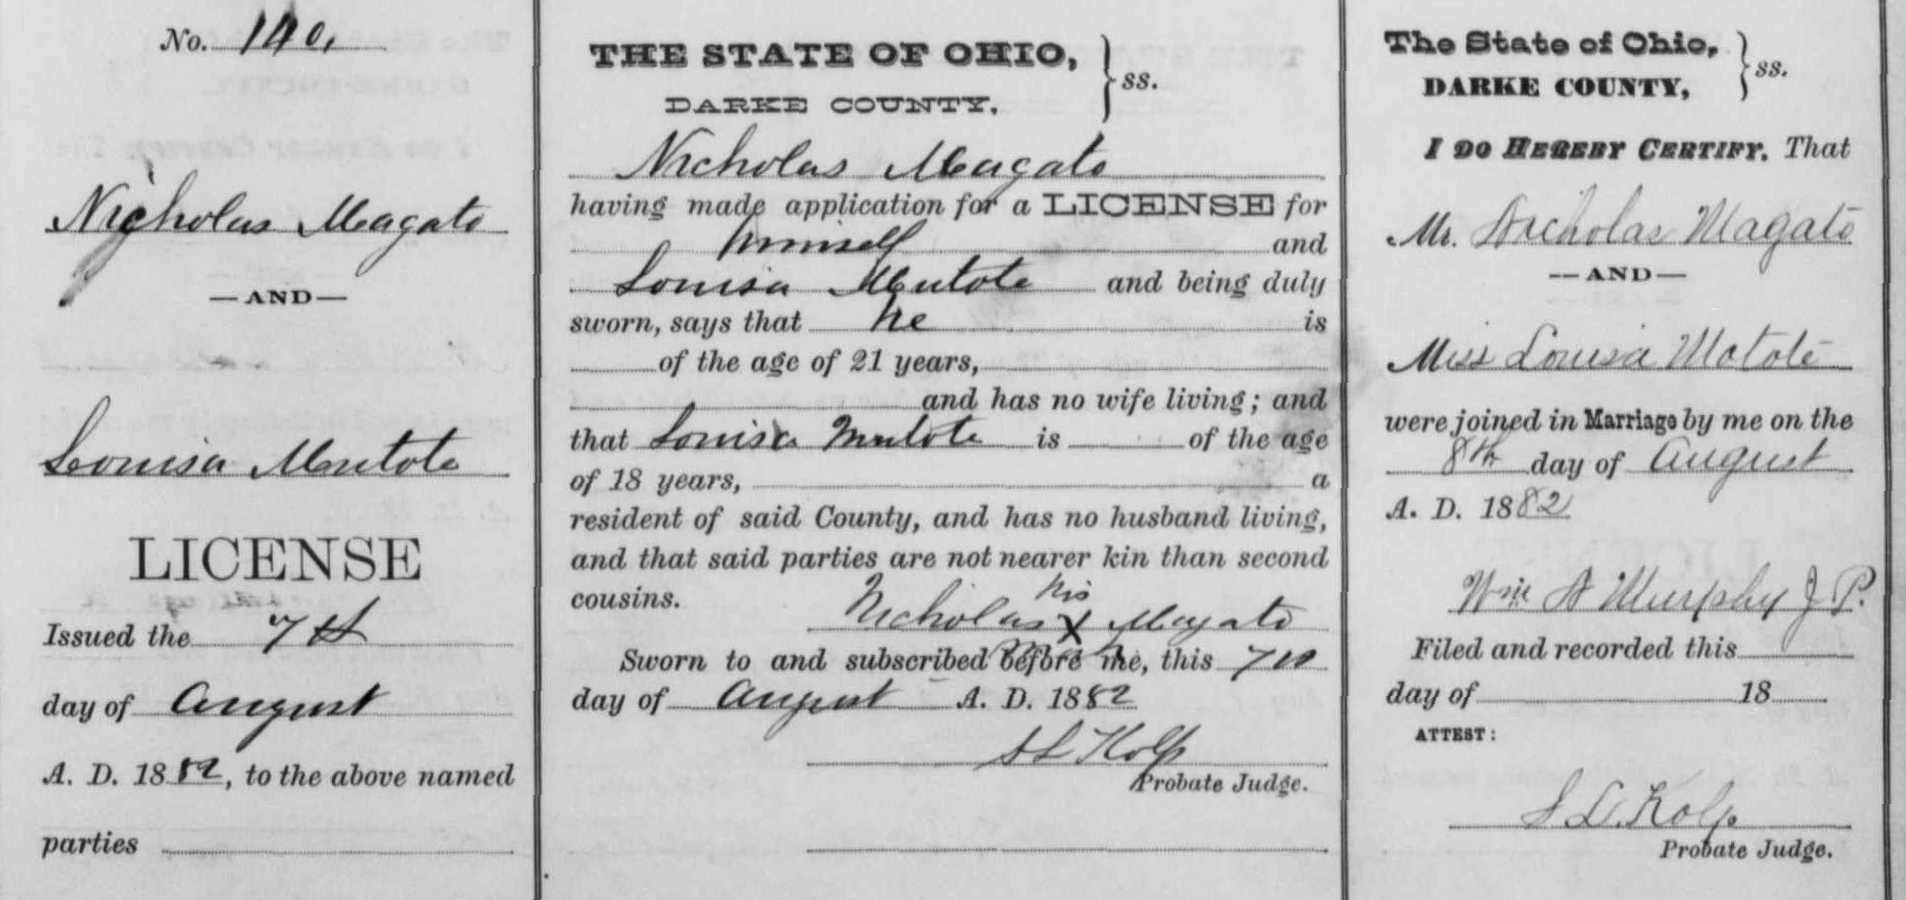 No. 140.
Nicholas Magato
—AND—
Louisa Mutote
LICENSE
Issued the 7th
day of August
A. D. 1882, to the above named
parties
THE STATE OF OHIO, } ss.
DARKE COUNTY.
Nicholas Magato
having made application for a LICENSE for
himself and
Louisa Mutote and being duly
sworn, says that he is
of the age of 21 years,
and has no wife living; and
that Louisa Mutote is of the age
of 18 years, a
resident of said County, and has no husband living,
and that said parties are not nearer kin than second
cousins.
his
Nicholas X Magato
Sworn to and subscribed before me, this 7th
day of August A. D. 1882
S L Kolp
Probate Judge.
The State of Ohio, } ss.
DARKE COUNTY,
I DO HEREBY CERTIFY, That
Mr. Nicholas Magato
—AND—
Miss Louisa Motote
were joined in Marriage by me on the
8th day of August
A. D. 1882
Wm A Murphy J P.
Filed and recorded this
day of 18
ATTEST:
S L. Kolp
Probate Judge.